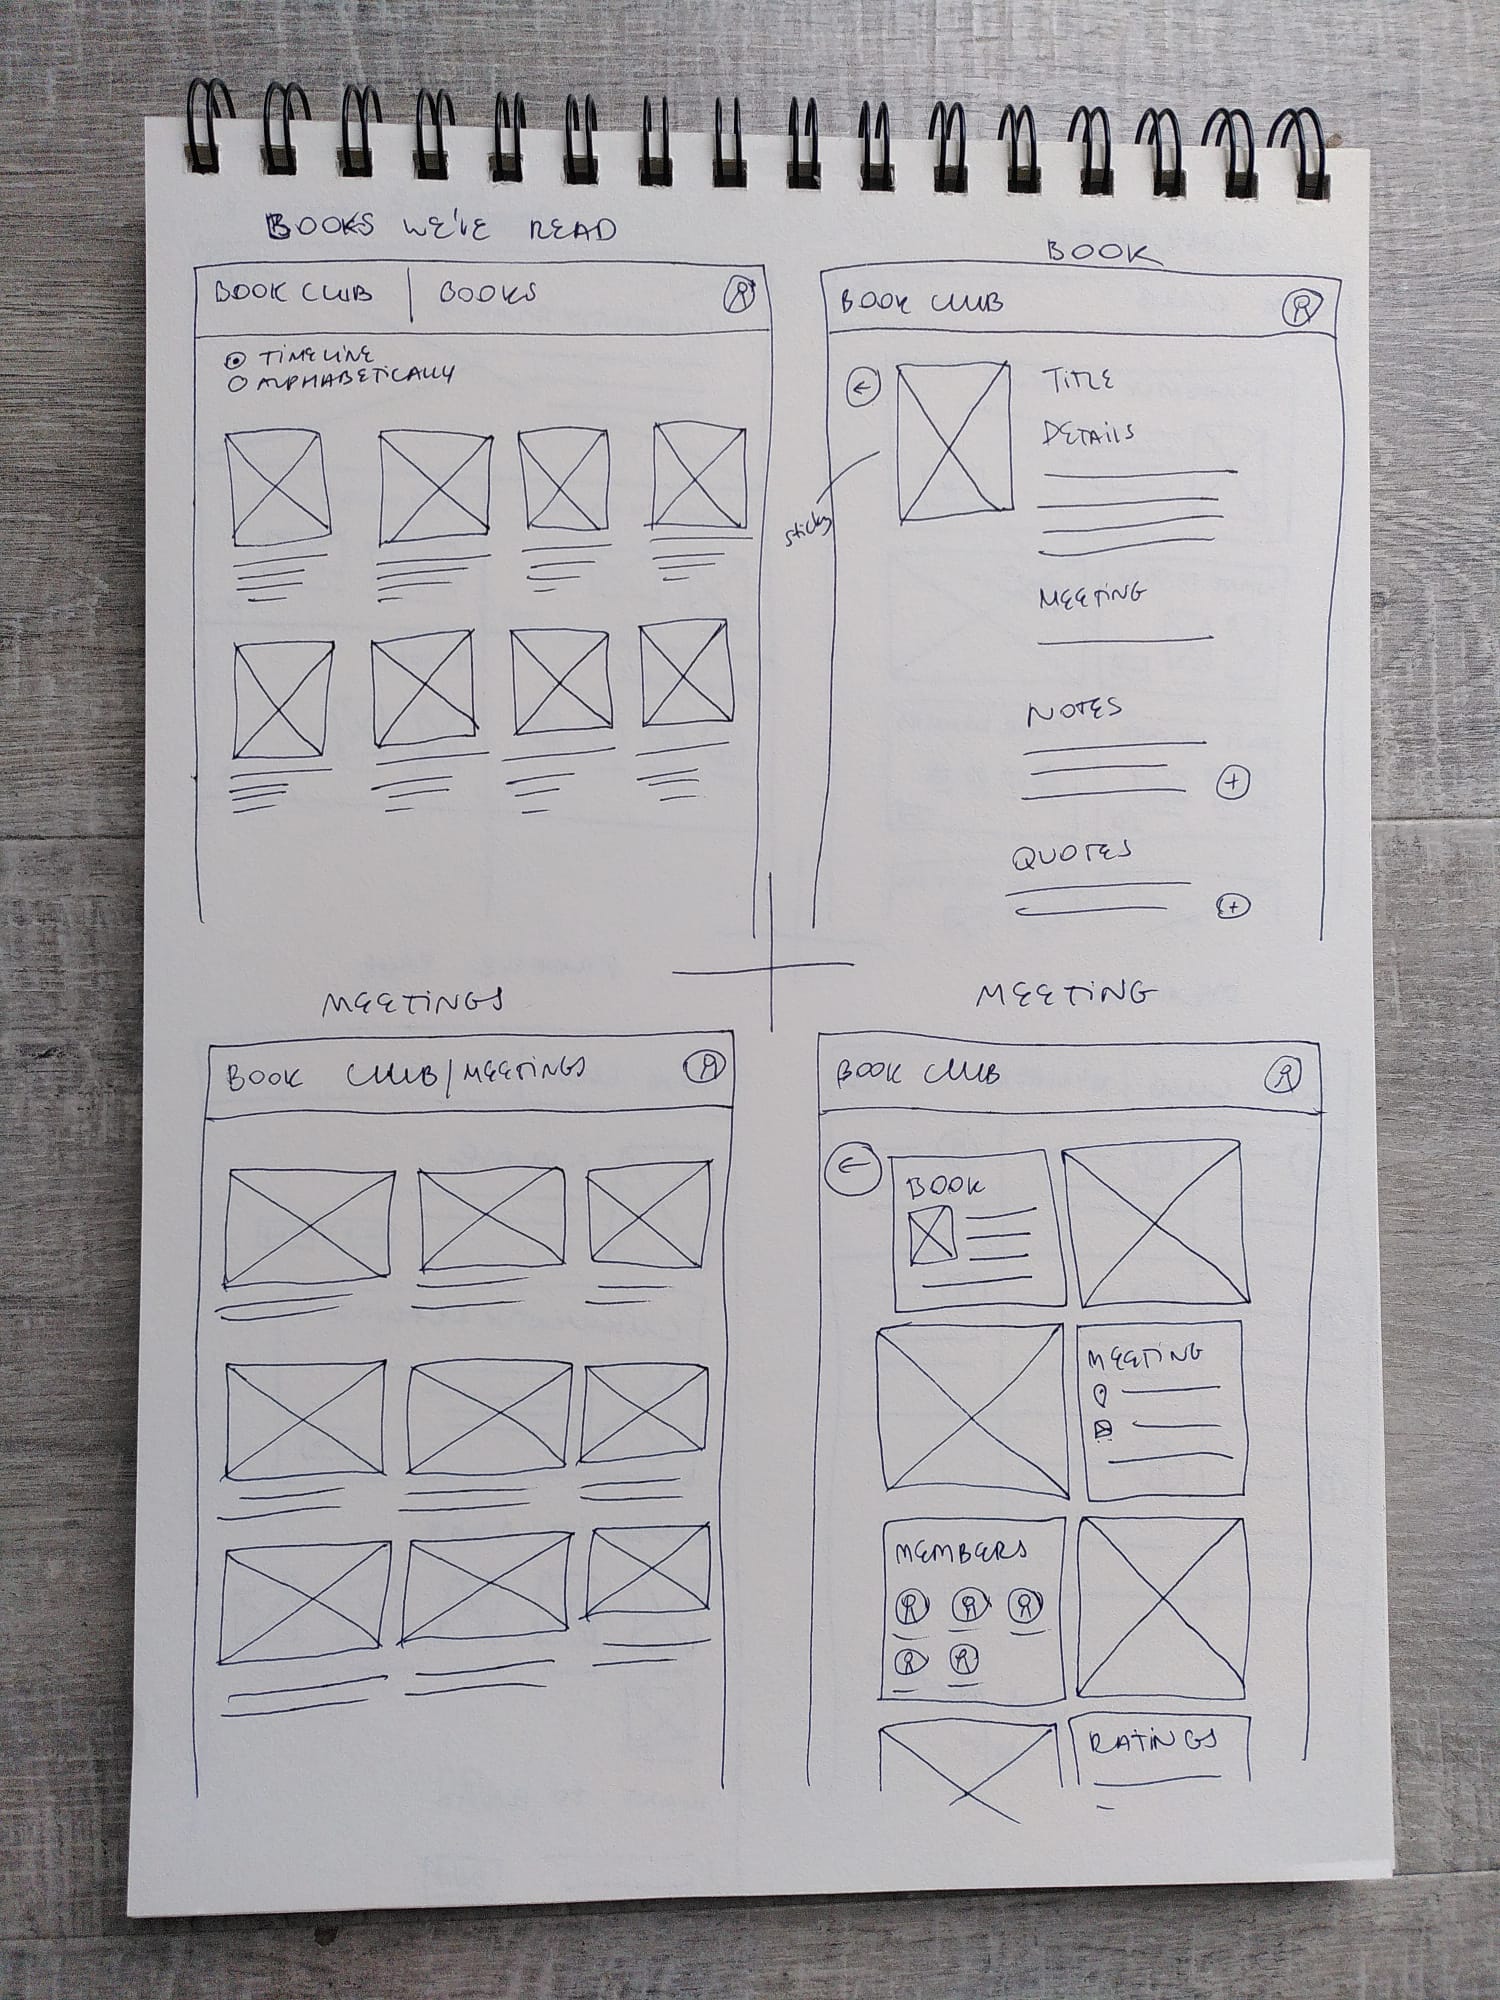 BOOKS WE'VE READ
BOOK CLUB | BOOKS
TIMELINE
ALPHABETICALLY
BOOK
BOOK CLUB
TITLE
DETAILS
sticky
MEETING
NOTES
QUOTES
MEETINGS
BOOK CLUB/MEETINGS
MEETING
BOOK CLUB
BOOK
MEETING
MEMBERS
RATINGS